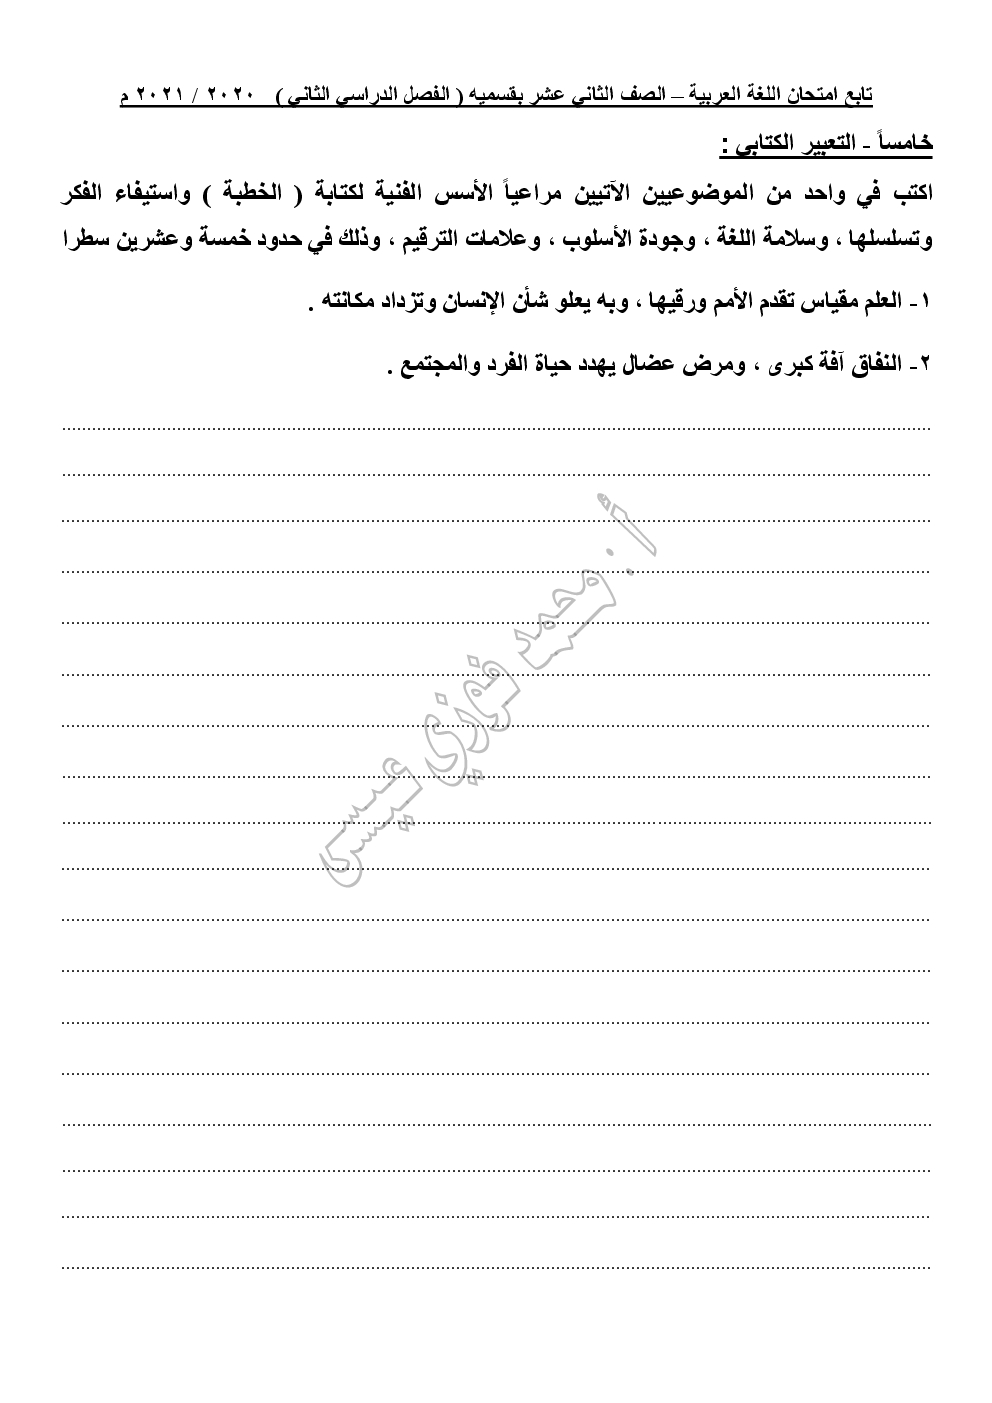 تابع امتحان اللغة العربية – الصف الثاني عشر بقسميه ( الفصل الدراسي الثاني ) ٢٠٢٠ / ٢٠٢١ م
خامساً - التعبير الكتابي :
اكتب في واحد من الموضوعيين الآتيين مراعياً الأسس الفنية لكتابة ( الخطبة ) واستيفاء الفكر
وتسلسلها ، وسلامة اللغة ، وجودة الأسلوب ، وعلامات الترقيم ، وذلك في حدود خمسة وعشرين سطرا
١- العلم مقياس تقدم الأمم ورقيها ، وبه يعلو شأن الإنسان وتزداد مكانته .
٢- النفاق آفة كبرى ، ومرض عضال يهدد حياة الفرد والمجتمع .
أ. محمد فوزي عيسى